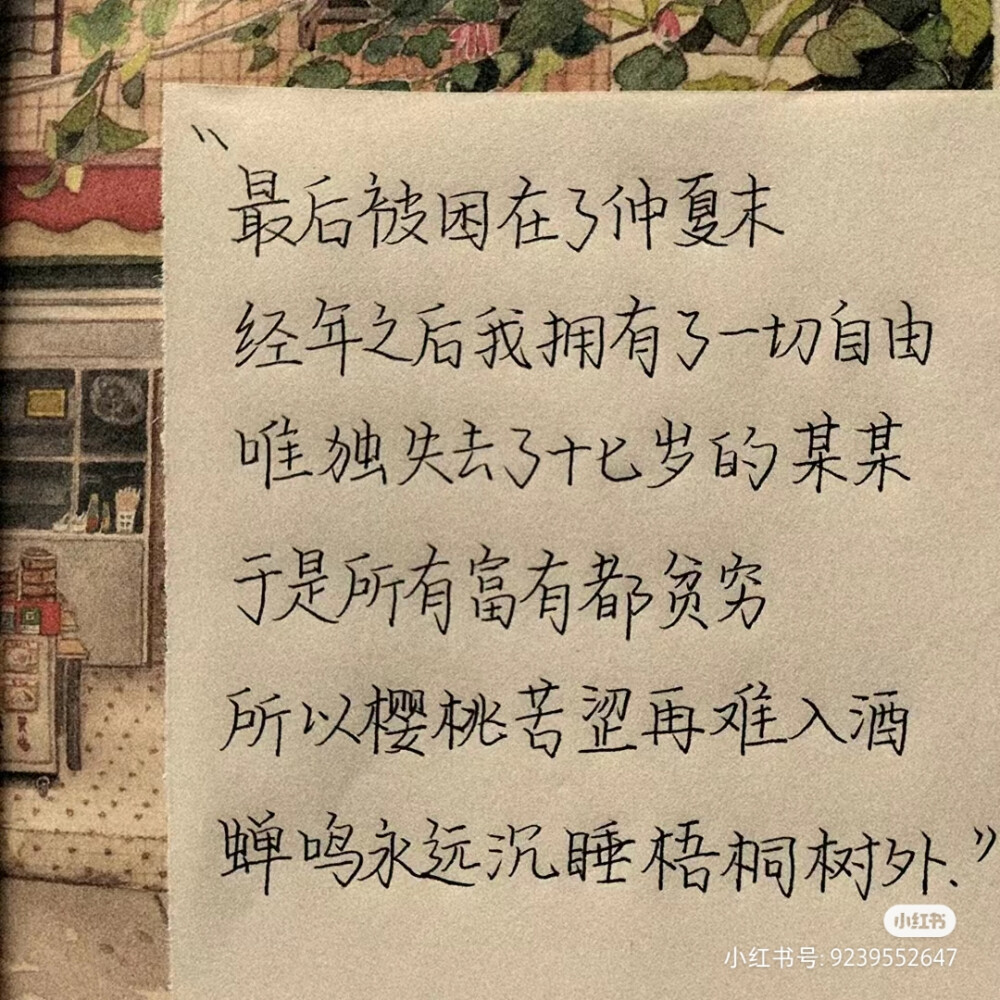 “
最后被困在了仲夏末
经年之后我拥有了一切自由
唯独失去了十七岁的某某
于是所有富有都贫穷
所以樱桃苦涩再难入酒
蝉鸣永远沉睡梧桐树外.”
小红书
小红书号: 9239552647